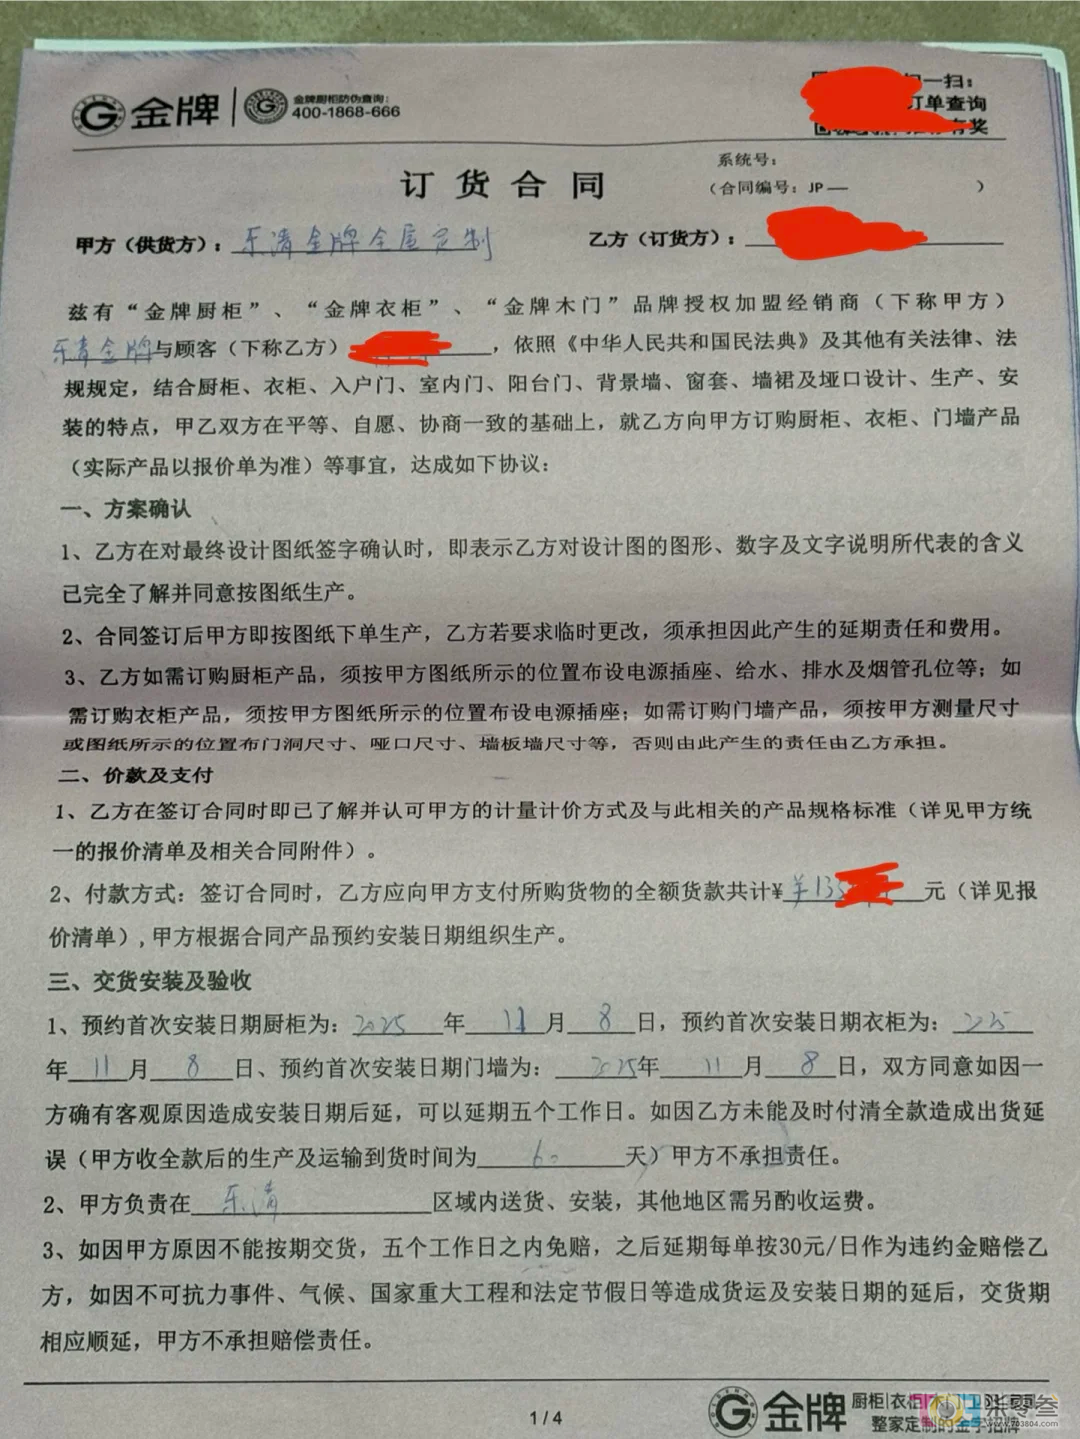 金牌 金牌厨柜防伪查询: 400-1868-666
扫一扫:
订单查询
有奖
系统号:
订货合同
(合同编号: JP— )
甲方(供货方): 乐清金牌全屋定制 乙方(订货方):
兹有“金牌厨柜”、“金牌衣柜”、“金牌木门”品牌授权加盟经销商(下称甲方)
乐清金牌与顾客(下称乙方) ,依照《中华人民共和国民法典》及其他有关法律、法
规规定,结合厨柜、衣柜、入户门、室内门、阳台门、背景墙、窗套、墙裙及垭口设计、生产、安
装的特点,甲乙双方在平等、自愿、协商一致的基础上,就乙方向甲方订购厨柜、衣柜、门墙产品
(实际产品以报价单为准)等事宜,达成如下协议:
一、方案确认
1、乙方在对最终设计图纸签字确认时,即表示乙方对设计图的图形、数字及文字说明所代表的含义
已完全了解并同意按图纸生产。
2、合同签订后甲方即按图纸下单生产,乙方若要求临时更改,须承担因此产生的延期责任和费用。
3、乙方如需订购厨柜产品,须按甲方图纸所示的位置布设电源插座、给水、排水及烟管孔位等;如
需订购衣柜产品,须按甲方图纸所示的位置布设电源插座;如需订购门墙产品,须按甲方测量尺寸
或图纸所示的位置布门洞尺寸、哑口尺寸、墙板墙尺寸等,否则由此产生的责任由乙方承担。
二、价款及支付
1、乙方在签订合同时即已了解并认可甲方的计量计价方式及与此相关的产品规格标准(详见甲方统
一的报价清单及相关合同附件)。
2、付款方式:签订合同时,乙方应向甲方支付所购货物的全额货款共计¥ ¥135 元(详见报
价清单),甲方根据合同产品预约安装日期组织生产。
三、交货安装及验收
1、预约首次安装日期厨柜为: 2025 年 11 月 8 日,预约首次安装日期衣柜为: 225
年 11 月 8 日、预约首次安装日期门墙为: 2025年 11 月 8 日,双方同意如因一
方确有客观原因造成安装日期后延,可以延期五个工作日。如因乙方未能及时付清全款造成出货延
误(甲方收全款后的生产及运输到货时间为 60 天)甲方不承担责任。
2、甲方负责在 乐清 区域内送货、安装,其他地区需另酌收运费。
3、如因甲方原因不能按期交货,五个工作日之内免赔,之后延期每单按30元/日作为违约金赔偿乙
方,如因不可抗力事件、气候、国家重大工程和法定节假日等造成货运及安装日期的延后,交货期
相应顺延,甲方不承担赔偿责任。
1/4
金牌 厨柜|衣柜|木门
整家定制的金字招牌